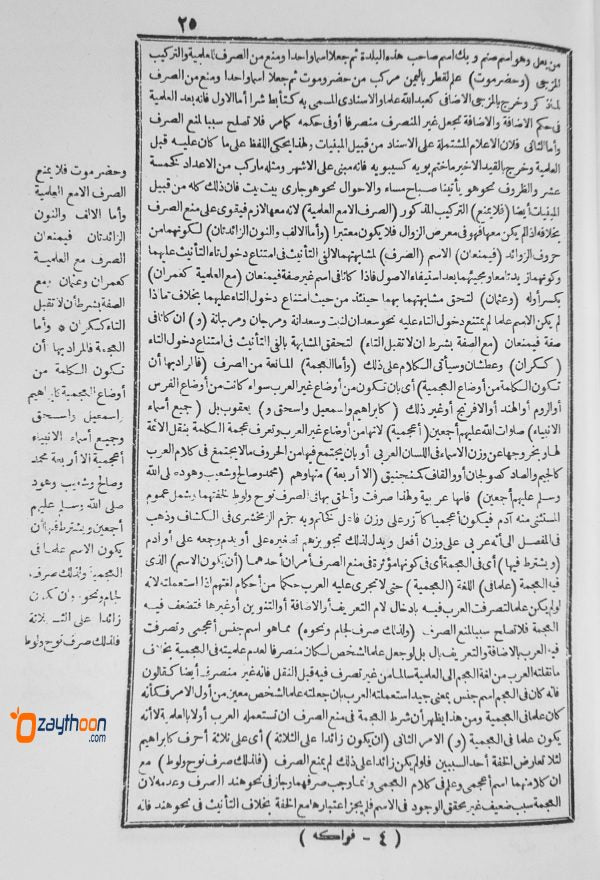 ٢٥
من بعل وهو اسم صنم وبك اسم صاحب هذه البلدة ثم جعلا اسما واحدا ومنع من الصرف للعلمية والتركيب
المزجى (وحضرموت) علم لقطر باليمن مركب من حضر وموت ثم جعلا اسما واحدا ومنع من الصرف
لما ذكر وخرج بالمزجى الاضافى كعبد الله علما والاسنادى المسمى به كتأبط شرا أما الاول فانه بعد العلمية
فى حكم الاضافة والاضافة تجعل غير المنصرف منصرفا أوفى حكمه كما مر فلا تصلح سببا لمنع الصرف
وأما الثانى فلان الاعلام المشتملة على الاسناد من قبيل المبنيات ولهذا يحكى اللفظ على ما كان عليه قبل
العلمية وخرج بالقيد الاخير ما ختم بويه كسيبويه فانه مبنى على الاشهر ومثله ما ركب من الاعداد كخمسة
عشر والظروف نحو هو يأتينا صباح مساء والاحوال نحو هو جارى بيت بيت فان ذلك كله من قبيل
المبنيات أيضا (فلا يمنع) التركيب المذكور (الصرف الامع العلمية) لانه معها لازم فيقوى على منع الصرف
بخلافه اذا لم يكن معها فهو فى معرض الزوال فلا يكون معتبرا (وأما الالف والنون الزائدتان) لكونهما من
حروف الزوائد (فيمنعان) الاسم (الصرف) لمشابهتهما لالفى التأنيث فى امتناع دخول تاء التأنيث عليهما
وكونهما زيدتا معا ومجيئهما بعد استيفاء الاصول فاذا كانا فى اسم غير صفة فيمنعان (مع العلمية كعمران)
بكسر أوله (وعثمان) لتحق مشابهتهما بهما حينئذ من حيث امتناع دخول التاء عليهما بخلاف ما اذا
لم يكن الاسم علما لم يمتنع دخول التاء عليه نحو سعدان لنبت وسعدانة ومرجان ومرجانة (و) ان كانا فى
صفة فيمنعان (مع الصفة بشرط ان لا تقبل التاء) لتحقق المشابهة بالفى التأنيث فى امتناع دخول التاء
(كسكران) وعطشان وسيأتى الكلام على ذلك (وأما العجمة) المانعة من الصرف (فالمراد بها أن
تكون الكلمة من أوضاع العجمية) أى بان تكون من أوضاع غير العرب سواء كانت من أوضاع الفرس
أو الروم أو الهند أو الافرنج أو غير ذلك (كابراهيم واسمعيل واسحق و) يعقوب بل (جميع أسماء
الانبياء) صلوات الله عليهم أجمعين (أعجمية) لانها من أوضاع غير العرب وتعرف عجمة الكلمة بنقل الائمة
لها وبخروجها عن وزن الاسماء فى اللسان العربى أو بان يجتمع فيها من الحروف ما لا يجتمع فى كلام العرب
كالجيم والصاد كصولجان أو والقاف كمنجنيق (الا أربعة) منها وهم (محمد وصالح وشعيب وهود صلى الله
وسلم عليهم أجمعين) فانها عربية ولهذا صرفت وألحق بها فى الصرف نوح ولوط لخفتهما وشمل عموم
المستثنى منه آدم فيكون أعجميا كآزر على وزن فاعل كخاتم وبه جزم الزمخشرى فى الكشاف وذهب
فى المفصل الى أنه عربى على وزن أفعل ويدل لذلك تجويزهم تصغيره على أويدم وجمعه على أوادم
(ويشترط فيها) أى فى العجمة أى فى كونها مؤثرة فى منع الصرف أمران أحدهما (أن يكون الاسم) الذى
فيه العجمة (علما فى) اللغة (العجمية) حتى لا تجرى عليه العرب حكما من أحكام لغتهم اذا استعملته لانه
لو لم يكن علما لتصرفت العرب فيه بادخال لام التعريف أو الاضافة أو التنوين أو غيرها فتضعف فيه
العجمة فلا تصلح سببا لمنع الصرف (ولذلك صرف لجام ونحوه) مما هو اسم جنس أعجمى وتصرفت
فيه العرب بالاضافة والتعريف بال بل لو جعل علما لشخص لكان منصرفا لعدم علميته فى العجمية بخلاف
ما نقلته العرب من لغة العجم الى العلمية سالما من غير تصرف فيه قبل النقل فانه غير منصرف أيضا كقالون
فانه كان فى العجم اسم جنس بمعنى جيد استعملته العرب بان جعلته علما لشخص معين من أول الامر فكأنه
كان علما فى العجمية ومن هذا يظهر أن شرط العجمة فى منع الصرف ان تستعمله العرب أولا بالعلمية لا أنه
يكون علما فى العجمية (و) الامر الثانى (ان يكون زائدا على الثلاثة) أى على ثلاثة أحرف كابراهيم
لئلا تعارض الخفة أحد السببين فلو لم يكن زائدا على ذلك لم يمنع الصرف (فلذلك صرف نوح ولوط) مع
ان كلا منهما اسم أعجمى وعلم فى كلام العجمى وانما وجب صرفهما وجاز فى نحو هند الصرف وعدمه لان
العجمة سبب ضعيف غير محقق الوجود فى الاسم فلم يجز اعتبارها مع الخفة بخلاف التأنيث فى نحو هند فانه
(٤ - فواكه)
وحضرموت فلا يمنع
الصرف الامع العلمية
وأما الالف والنون
الزائدتان فيمنعان
الصرف مع العلمية
كعمران وعثمان ومع
الصفة بشرط أن لا تقبل
التاء كسكران * وأما
العجمة فالمراد بها أن
تكون الكلمة من
أوضاع العجمية كابراهيم
واسمعيل واسحق
وجميع أسماء الانبياء
أعجمية الا أربعة محمد
وصالح وشعيب وهود
صلى الله وسلم عليهم
أجمعين ويشترط فيها أن
يكون الاسم علما فى
العجمية ولذلك صرف
لجام ونحوه وأن يكون
زائدا على الثلاثة
فلذلك صرف نوح ولوط
zaythoon
.com